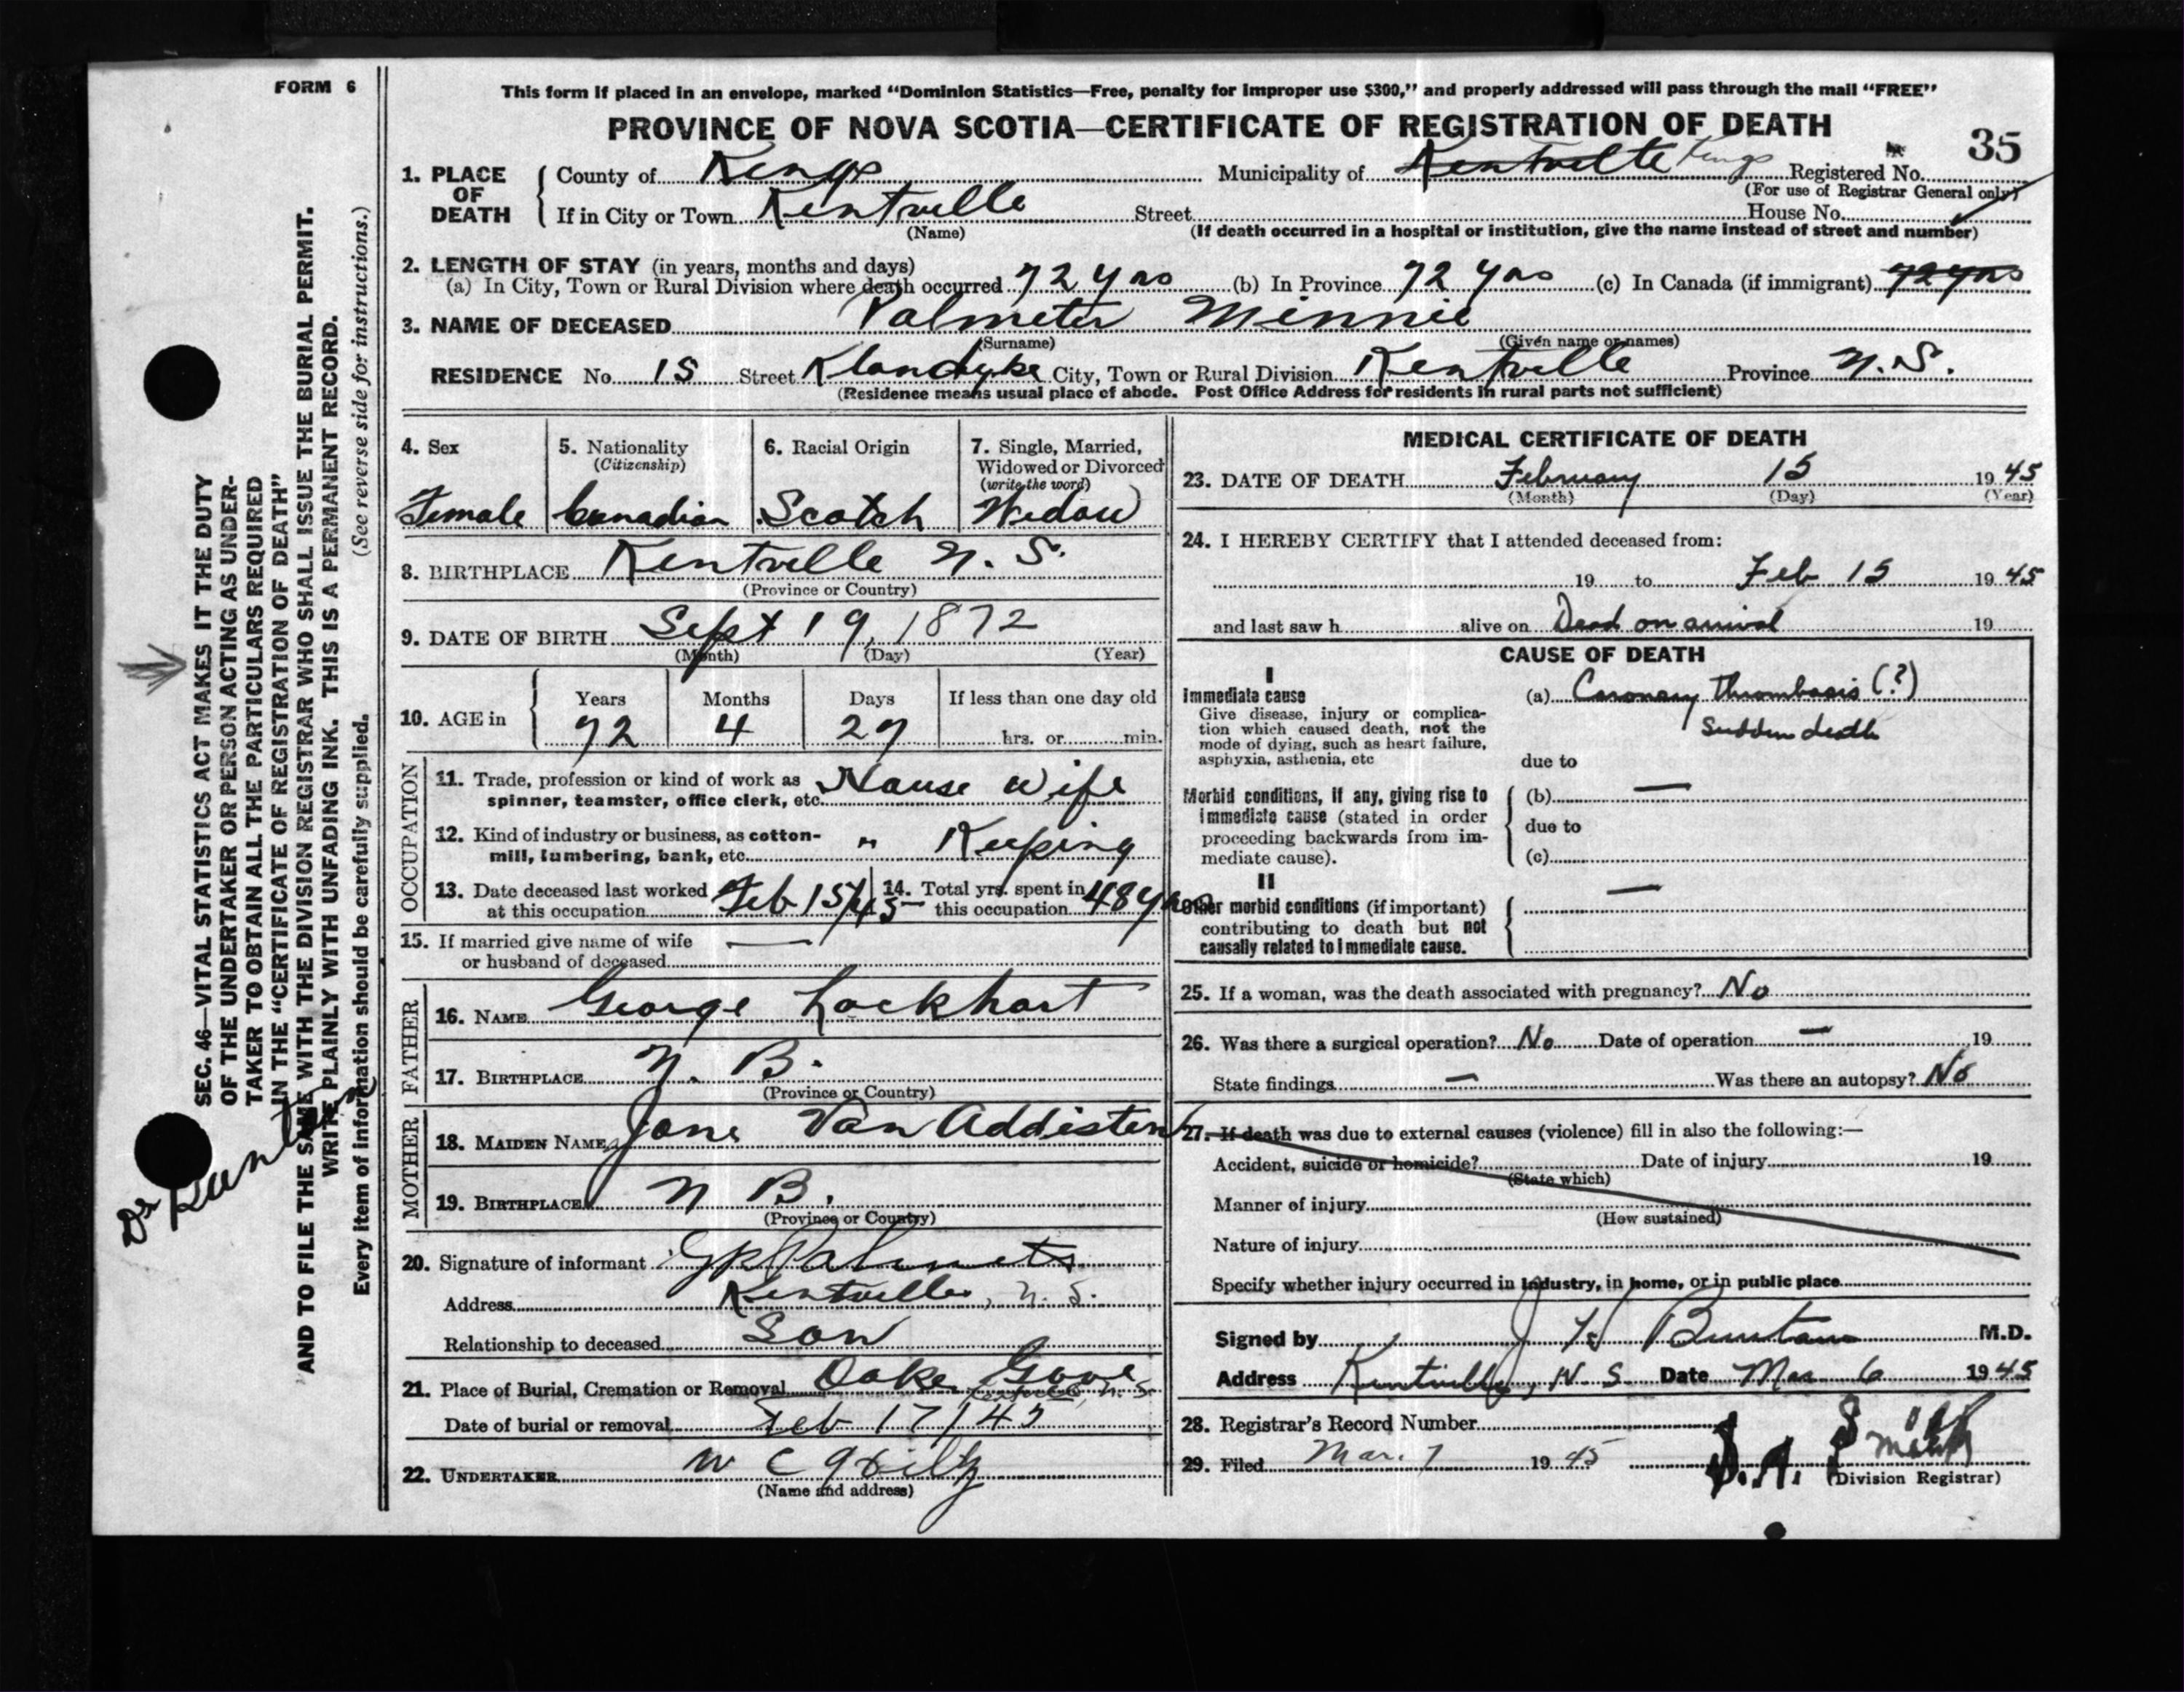 FORM 6
This form if placed in an envelope, marked "Dominion Statistics—Free, penalty for improper use $300," and properly addressed will pass through the mail "FREE"
PROVINCE OF NOVA SCOTIA—CERTIFICATE OF REGISTRATION OF DEATH
35
1. PLACE OF DEATH
County of Kings Municipality of Kentville Kings Registered No.
(For use of Registrar General only)
If in City or Town Kentville Street House No.
(Name) (If death occurred in a hospital or institution, give the name instead of street and number)
2. LENGTH OF STAY (in years, months and days)
(a) In City, Town or Rural Division where death occurred 72 yrs (b) In Province 72 yrs (c) In Canada (if immigrant) 72 yrs
3. NAME OF DECEASED Palmeter Minnie
(Surname) (Given name or names)
RESIDENCE No. 15 Street Klondyke City, Town or Rural Division Kentville Province N.S.
(Residence means usual place of abode. Post Office Address for residents in rural parts not sufficient)
4. Sex
Female
5. Nationality
(Citizenship)
Canadian
6. Racial Origin
Scotch
7. Single, Married, Widowed or Divorced
(write the word)
Widow
8. BIRTHPLACE Kentville N. S.
(Province or Country)
9. DATE OF BIRTH Sept 19, 1872
(Month) (Day) (Year)
10. AGE in
Years Months Days If less than one day old
72 4 27 hrs. or min.
OCCUPATION
11. Trade, profession or kind of work as House wife
spinner, teamster, office clerk, etc.
12. Kind of industry or business, as cotton-
mill, lumbering, bank, etc. " Keeping
13. Date deceased last worked at this occupation Feb 15/45
14. Total yrs. spent in this occupation 48 yrs
15. If married give name of wife —
or husband of deceased
FATHER
16. NAME George Lockhart
17. BIRTHPLACE N. B.
(Province or Country)
MOTHER
18. MAIDEN NAME Jane Van Addisten
19. BIRTHPLACE N B.
(Province or Country)
20. Signature of informant G P Palmeter
Address Kentville, N. S.
Relationship to deceased Son
21. Place of Burial, Cremation or Removal Oake Grove
Kentville, N. S.
Date of burial or removal Feb 17/45
22. UNDERTAKER W C
(Name and address)
MEDICAL CERTIFICATE OF DEATH
23. DATE OF DEATH February 15 1945
(Month) (Day) (Year)
24. I HEREBY CERTIFY that I attended deceased from:
19 to Feb 15 1945
and last saw h alive on Dead on arrival 19
CAUSE OF DEATH
I
Immediate cause
Give disease, injury or complica-
tion which caused death, not the
mode of dying, such as heart failure,
asphyxia, asthenia, etc
(a) Coronary Thrombosis (?)
Sudden death
due to
Morbid conditions, if any, giving rise to
immediate cause (stated in order
proceeding backwards from im-
mediate cause).
(b) —
due to
(c)
II
Other morbid conditions (if important)
contributing to death but not
causally related to immediate cause.
—
25. If a woman, was the death associated with pregnancy? No
26. Was there a surgical operation? No Date of operation — 19
State findings — Was there an autopsy? No
27. If death was due to external causes (violence) fill in also the following:—
Accident, suicide or homicide? Date of injury 19
(State which)
Manner of injury
(How sustained)
Nature of injury
Specify whether injury occurred in industry, in home, or in public place
Signed by J H Burton M.D.
Address Kentville, N. S. Date Mar 6 1945
28. Registrar's Record Number
29. Filed Mar. 7 1945
(Division Registrar)
SEC. 46—VITAL STATISTICS ACT MAKES IT THE DUTY
OF THE UNDERTAKER OR PERSON ACTING AS UNDER-
TAKER TO OBTAIN ALL THE PARTICULARS REQUIRED
IN THE "CERTIFICATE OF REGISTRATION OF DEATH"
AND TO FILE THE SAME WITH THE DIVISION REGISTRAR WHO SHALL ISSUE THE BURIAL PERMIT.
WRITE PLAINLY WITH UNFADING INK. THIS IS A PERMANENT RECORD.
Every item of information should be carefully supplied. (See reverse side for instructions.)
Dr Burton